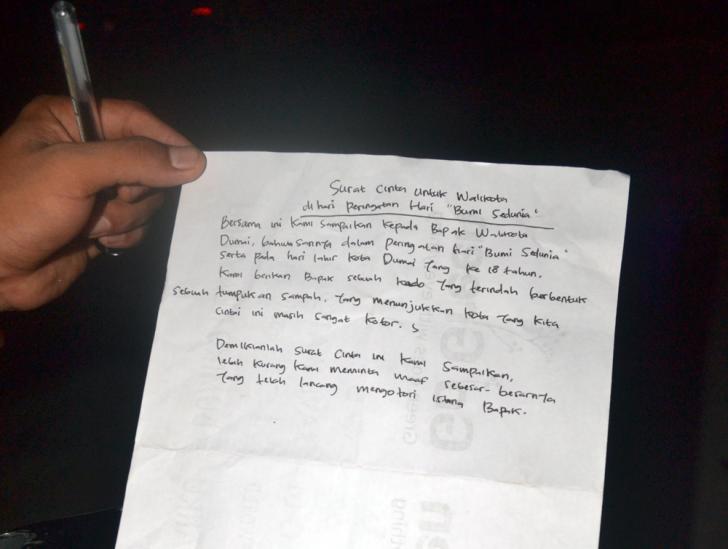 Surat Cinta Untuk Walikota
di hari Peringatan Hari "Bumi Sedunia"
Bersama ini Kami Sampaikan Kepada Bapak Walikota
Dumai, bahwasannya dalam Peringatan hari "Bumi Sedunia"
serta pada hari lahir Kota Dumai Yang ke 18 tahun.
Kami berikan Bapak sebuah kado Yang terindah berbentuk
sebuah tumpukan sampah. Yang menunjukkan Kota Yang Kita
Cintai ini masih sangat Kotor.
Demikianlah Surat Cinta ini Kami Sampaikan,
lebih Kurang Kami meminta maaf sebesar-besarnya
Yang telah lancang mengotori istana Bapak.